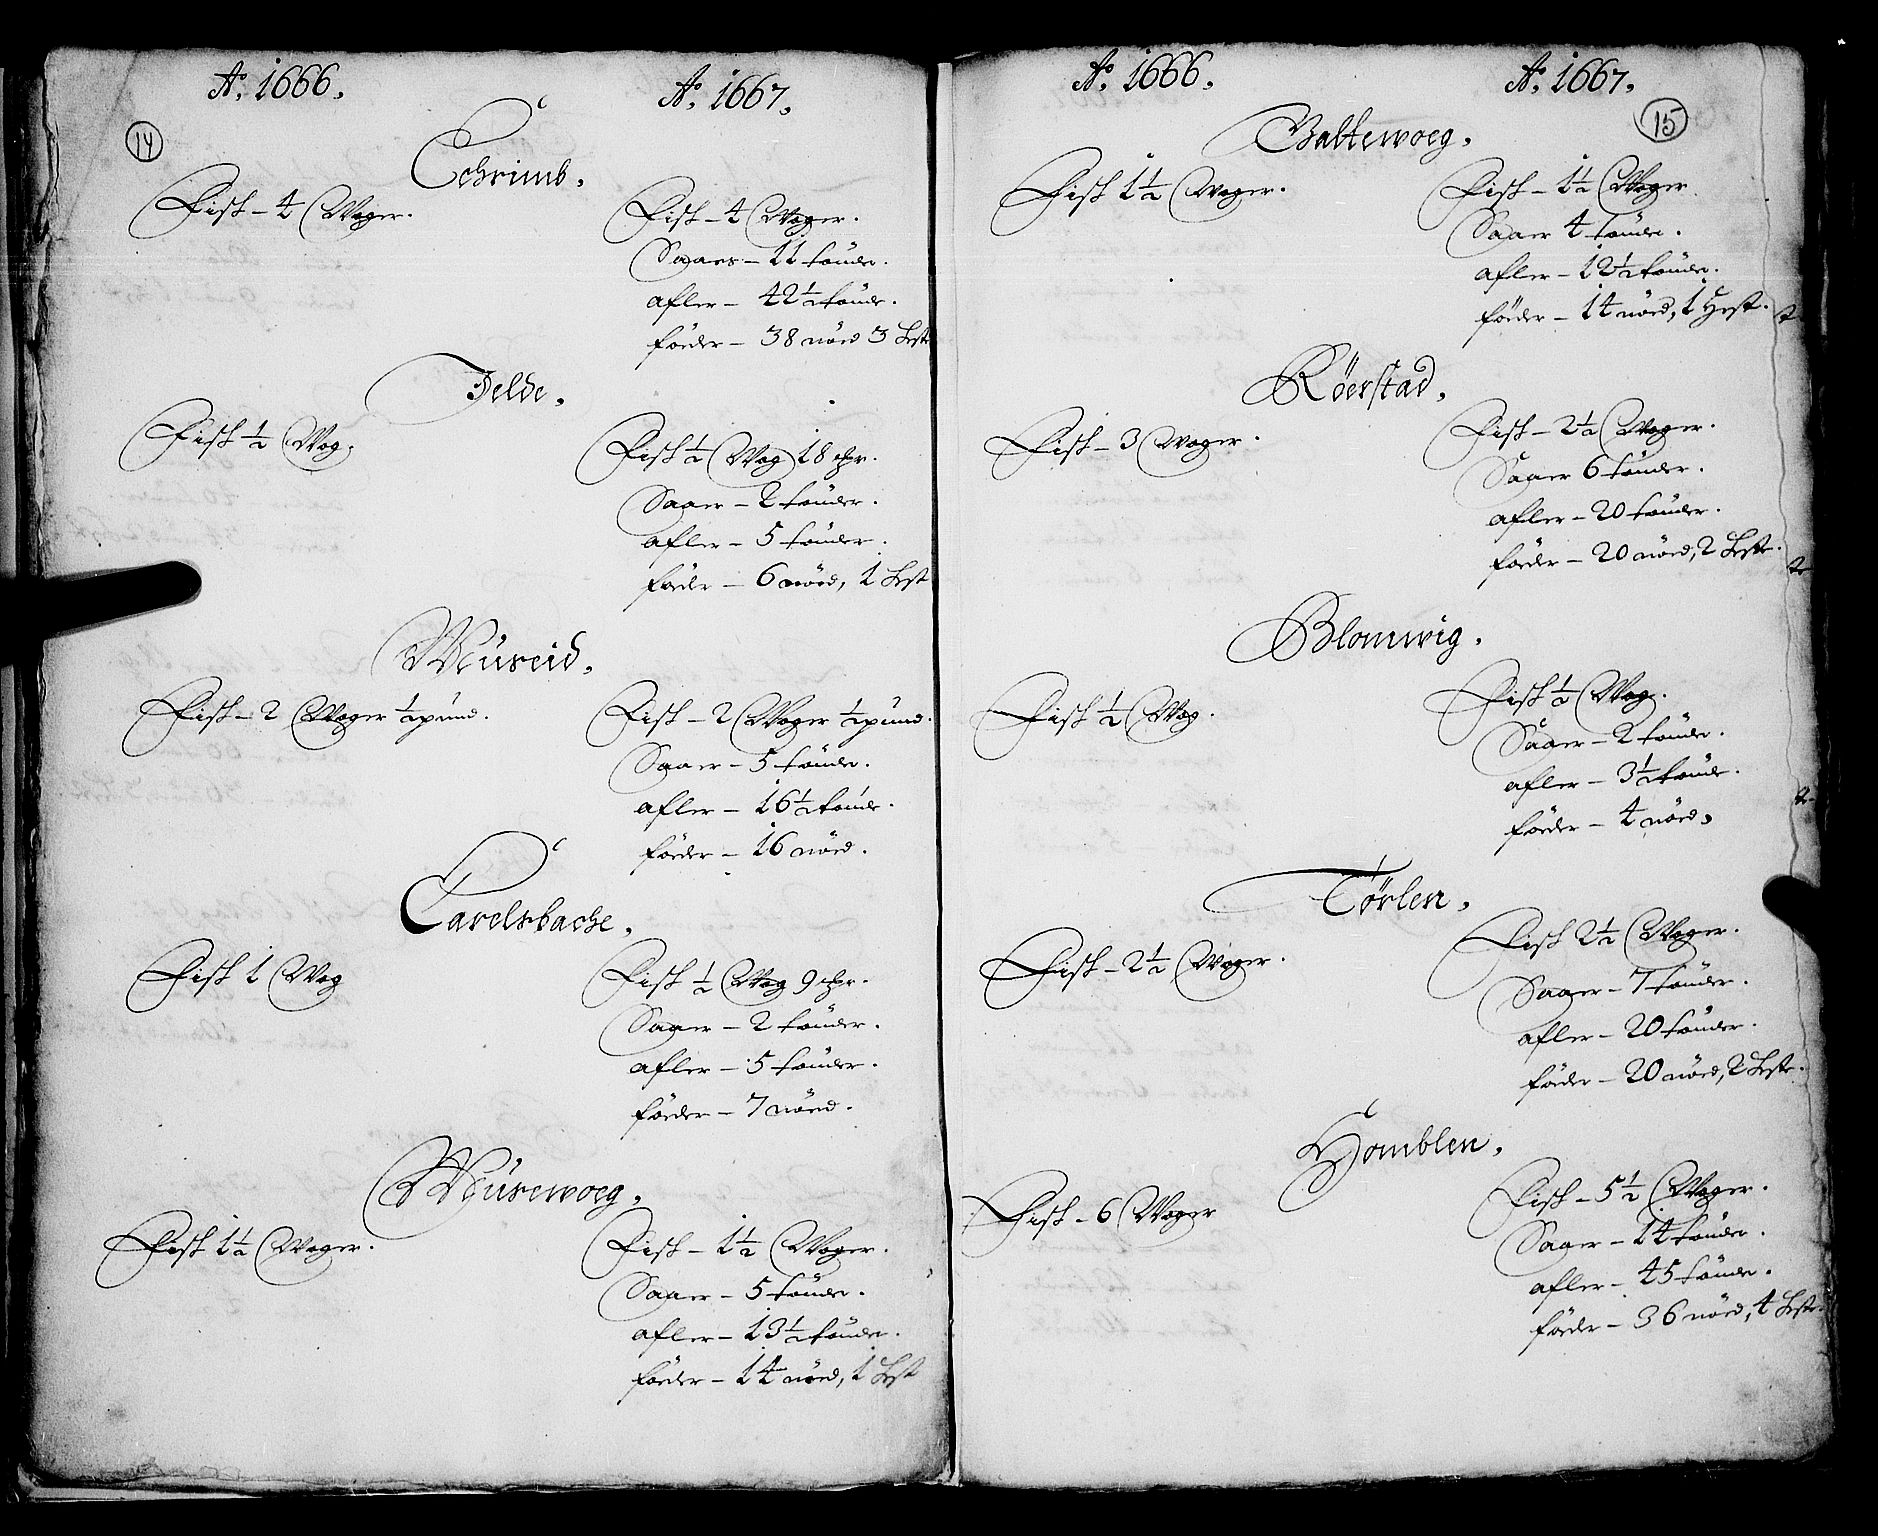 Ao. 1666.
Ao. 1667.
14
Schrimb.
Fisk - 4 Woger.
Fisk - 4 Woger.
Saaer - 11 tönde.
afler - 42½ tönde.
föeder - 38 nöed 3 Hest
Jelde.
Fisk ½ Wog.
Fisk ½ Wog 18
Saaer - 2 tönder.
afler - 5 tönder.
föder - 6 nöed, 1 Hest
Müseid.
Fisk - 2 Woger ½ pund.
Fisk - 2 Woger ½ pund.
Saaer - 5 tönde.
afler - 16½ tönde.
föeder - 16 nöed.
Carelsbache.
Fisk 1 Wog
Fisk ½ Wog 9
Saaer - 2 tönder.
afler - 5 tönder.
föeder - 7 nöed.
Müsewoeg.
Fisk 1½ Woger.
Fisk - 1½ Woger.
Saaer - 5 tönde.
afler - 13½ tönde.
föeder - 14 nöed, 1 Hest
Ao. 1666.
Ao. 1667.
15
Baltewoeg.
Fisk 1½ Woger.
Fisk - 1½ Woger
Saaer 4 tönde.
afler - 12½ tönde.
föeder - 14 nöed, 1 Hest.
Röerstad.
Fisk - 3 Woger.
Fisk - 2½ Woger.
Saaer 6 tönder.
afler - 20 tönder.
föeder - 20 nöed, 2 Heste.
Blomwig.
Fisk ½ Wog.
Fisk ½ Wog.
Saaer - 2 tönde.
afler - 3½ tönde.
föeder - 4 nöed,
Törlen.
Fisk - 2½ Woger.
Fisk 2½ Woger.
Saaer - 7 tönder.
afler - 20 tönder.
föeder - 20 nöed, 2 Heste.
Homblen.
Fisk - 6 Woger
Fisk - 5½ Woger.
Saaer - 14 tönder.
afler - 45 tönde.
föeder - 36 nöed, 4 Heste.